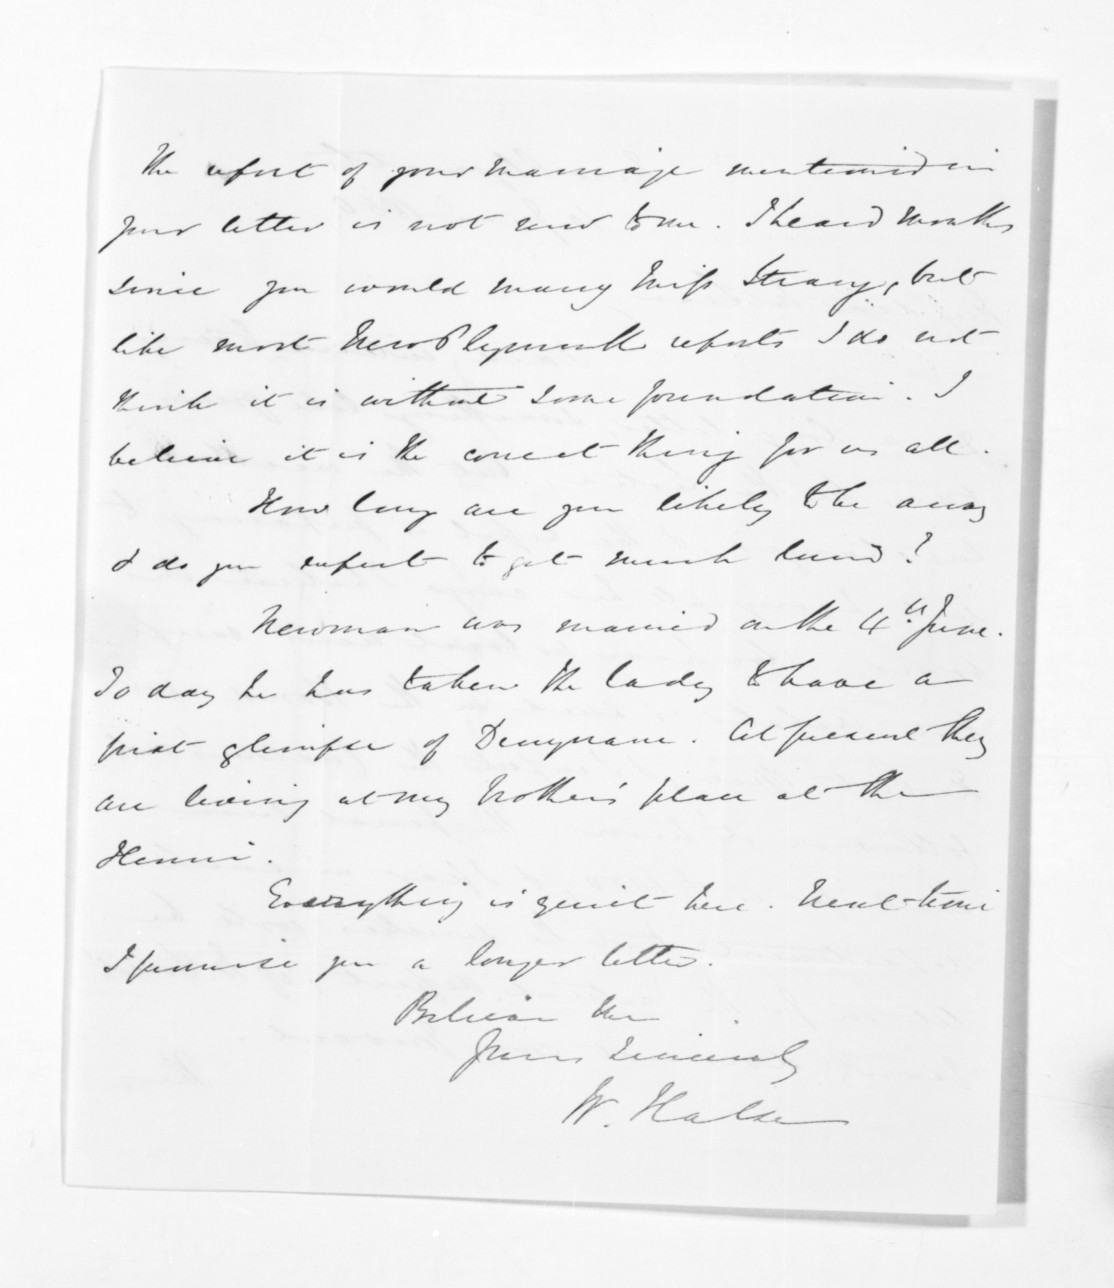 The report of your marriage mentioned in
your letter is not new to me. I heard months
since you would marry Miss Strang, but
like most New Plymouth reports I do not
think it is without some foundation. I
believe it is the correct thing for us all.
How long are you likely to be away
& do you expect to get much land?
Newman was married on the 4th June.
To day he has taken the lady to have a
first glimpse of . At present they
are living at my Mother's place at the
Henui.
Everything is quiet here. Next time
I promise you a longer letter.
Believe me
Yours sincerely
W. Halse